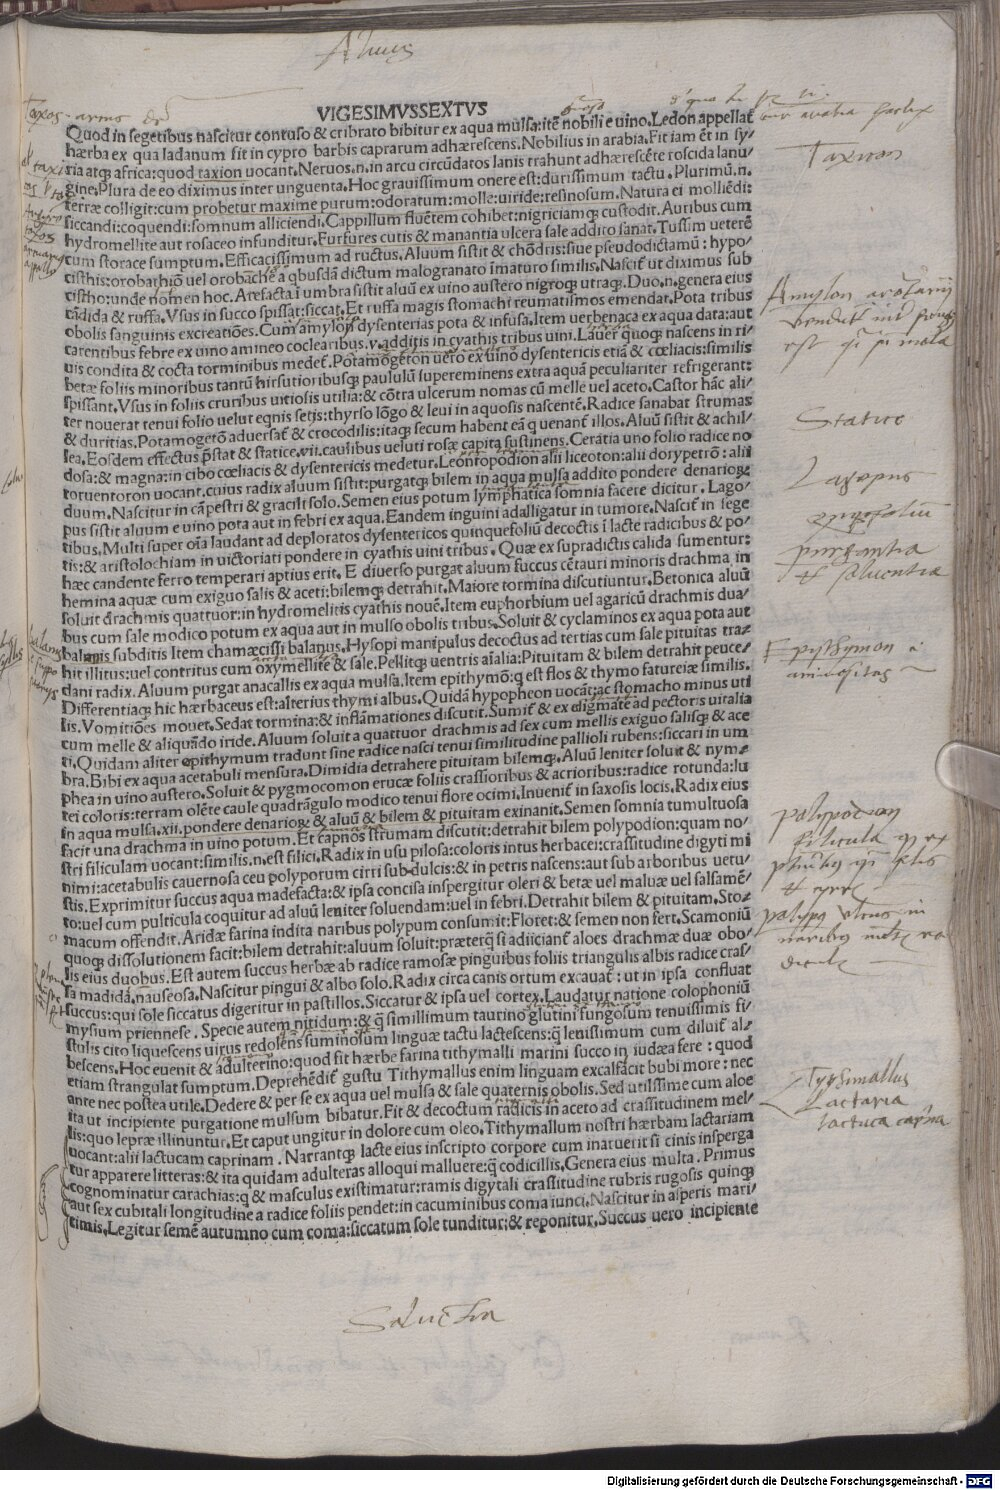 Aluus
VIGESIMVSSEXTVS
Quod in segetibus nascitur contuso & cribrato bibitur ex aqua mulsa: itē nobili e uino. Ledon appellat̄
hærba ex qua ladanum fit in cypro barbis caprarum adhærescens. Nobilius in arabia. Fit iam ēt in sy/
ria atq; africa: quod taxion uocant. Neruos.n. in arcu circūdatos lanis trahunt adhærescēte roscida lanu/
gine. Plura de eo diximus inter unguenta. Hoc grauissimum onere est: durissimum tactu. Plurimū.n.
terræ colligit: cum probetur maxime purum: odoratum: molle: uiride: resinosum. Natura ei molliēdi:
siccandi: coquendi: somnum alliciendi. Cappillum fluētem cohibet: nigriciamq; custodit. Auribus cum
hydromellite aut rosaceo infunditur. Furfures cutis & manantia ulcera sale addito sanat. Tussim ueterē
cum storace sumptum. Efficacissimum ad ructus. Aluum sistit & chōdris: siue pseudodictamū: hypo/
cisthis: orobathiō uel orobache a qbusdā dictum malogranato īmaturo similis. Nascit̄ ut diximus sub
cistho: unde nomen hoc. Arefacta ī umbra sistit aluū ex uino austero nigroq; utraq;. Duo.n. genera eius
cādida & ruffa. Vsus in succo spissat: siccat. Et ruffa magis stomachi reumatismos emendat. Pota tribus
obolis sanguinis excreatiōes. Cum amylon dysenterias pota & infusa. Item uerbenaca ex aqua data: aut
carentibus febre ex uino amineo coclearibus.v. additis in cyathis tribus uini. Lauer quoq; nascens in ri/
uis condita & cocta torminibus medet̄. Potamogeton uero ex uino dysentericis etiā & cœliacis: similis
betæ foliis minoribus tantū hirsutioribusq; paululū supereminens extra aquā peculiariter refrigerant:
spissant. Vsus in foliis cruribus uitiosis utilia: & cōtra ulcerum nomas cū melle uel aceto. Castor hāc ali/
ter nouerat tenui folio uelut eqnis setis: thyrso lōgo & leui in aquosis nascentē. Radice sanabat strumas
& duritias. Potamogetō aduersat̄ & crocodilis: itaq; secum habent eā q uenant̄ illos. Aluū sistit & achil/
lea. Eosdem effectus p̄stat & statice.vii. caulibus ueluti rosæ capita sustinens. Ceratia uno folio radice no
dosa: & magna: in cibo cœliacis & dysentericis medetur. Leontopodion alii liceoton: alii dorypetrō: alii
toruentoron uocant. cuius radix aluum sistit: purgatq; bilem in aqua mulsa addito pondere denarioꝝ
duum. Nascitur in cāpestri & gracili solo. Semen eius potum lymphatica somnia facere dicitur. Lago/
pus sistit aluum e uino pota aut in febri ex aqua. Eandem inguini adalligatur in tumore. Nascit̄ in sege
tibus. Multi super oīa laudant ad deploratos dysentericos quinquefoliū decoctis ī lacte radicibus & po/
tis: & aristolochiam in uictoriati pondere in cyathis uini tribus. Quæ ex supradictis calida sumentur:
hæc candente ferro temperari aptius erit. E diuerso purgat aluum succus cētauri minoris drachma in
hemina aquæ cum exiguo salis & aceti: bilemq; detrahit. Maiore tormina discutiuntur. Betonica aluū
soluit drachmis quattuor: in hydromelitis cyathis nouē. Item euphorbium uel agaricū drachmis dua/
bus cum sale modico potum ex aqua aut in mulso obolis tribus. Soluit & cyclaminos ex aqua pota aut
balanis subditis Item chamæcissi balanus. Hysopi manipulus decoctus ad tertias cum sale pituitas tra/
hit illitus: uel contritus cum oxymellite & sale. Pellitq; uentris aīalia: Pituitam & bilem detrahit peuce/
dani radix. Aluum purgat anacallis ex aqua mulsa. Item epithymō: q est flos & thymo fatureiæ similis.
Differentiaq; hic hærbaceus est: alterius thymi albus. Quidā hypopheon uocāt: ac stomacho minus uti
lis. Vomitiōes mouet. Sedat tormina: & inflāmationes discutit. Sumit̄ & ex digmate ad pectoris uitalia
cum melle & aliquādo iride. Aluum soluit a quattuor drachmis ad sex cum mellis exiguo salisq; & ace
ti. Quidam aliter epithymum tradunt sine radice nasci tenui similitudine pallioli rubens: siccari in um
bra. Bibi ex aqua acetabuli mensura. Dimidia detrahere pituitam bilemq;. Aluū leniter soluit & nym/
phea in uino austero. Soluit & pygmocomon erucæ foliis crassioribus & acrioribus: radice rotunda: lu
tei coloris: terram olēte caule quadrāgulo modico tenui flore ocimi. Inuenit̄ in saxosis locis. Radix eius
in aqua mulsa.xii. pondere denarioꝝ & aluū & bilem & pituitam exinanit. Semen somnia tumultuosa
facit una drachma in uino potum. Et capnos strumam discutit: detrahit bilem polypodion: quam no/
stri filiculam uocant: similis.n. est filici. Radix in usu pilosa: coloris intus herbacei: crassitudine digyti mi
nimi: acetabulis cauernosa ceu polyporum cirri sub dulcis: & in petris nascens: aut sub arboribus uetu/
stis. Exprimitur succus aqua madefacta: & ipsa concisa inspergitur oleri & betæ uel maluæ uel salsamē/
to: uel cum pulticula coquitur ad aluū leniter soluendam: uel in febri. Detrahit bilem & pituitam. Sto/
macum offendit. Aridæ farina indita naribus polypum consumit: Floret: & semen non fert. Scamoniū
quoq; dissolutionem facit: bilem detrahit: aluum soluit: præterq̄ si adiiciant̄ aloes drachmæ duæ obo/
lis eius duobus. Est autem succus herbæ ab radice ramosæ pinguibus foliis triangulis albis radice cras/
sa madida, nauseosa. Nascitur pingui & albo solo. Radix circa canis ortum excauat̄: ut in ipsa confluat
succus: qui sole siccatus digeritur in pastillos. Siccatur & ipsa uel cortex. Laudatur natione colophoniū
mysium priennese. Specie autem nitidum: & q̄ simillimum taurino glutini fungosum tenuissimis fi/
stulis cito liquescens uirus redolens suminosum linguæ tactu lactescens: q̄ lenissimum cum diluit̄ al/
bescens. Hoc euenit & adulterino: quod fit hærbe farina tithymalli marini succo in iudæa fere: quod
etiam strangulat sumptum. Deprehēdit̄ gustu Tithymallus enim linguam excalfacit bubi more: nec
ante nec postea utile. Dedere & per se ex aqua uel mulsa & sale quaternis obolis. Sed utilissime cum aloe
ita ut incipiente purgatione mulsum bibatur. Fit & decoctum radicis in aceto ad crassitudinem mel/
lis: quo lepræ illinuntur. Et caput ungitur in dolore cum oleo. Tithymallum nostri hærbam lactariam
uocant: alii lactucam caprinam. Narrantq; lacte eius inscripto corpore cum inaruerit si cinis insperga
tur apparere litteras: & ita quidam adulteras alloqui malluere: q̄ codicillis. Genera eius multa. Primus
cognominatur carachias: q & masculus existimatur: ramis digytali crassitudine rubris rugosis quinq;
aut sex cubitali longitudine a radice foliis pendet: in cacuminibus coma iunci. Nascitur in asperis mari/
timis. Legitur semē autumno cum coma: siccatum sole tunditur: & reponitur. Succus uero incipiente
Taxion
Statice
Lagopus
purgantia
& soluentia
Epythymon
polypodion
filicula
Tytimallus
Lactaria
lactuca caprina
Soluētia
Digitalisierung gefördert durch die Deutsche Forschungsgemeinschaft - DFG